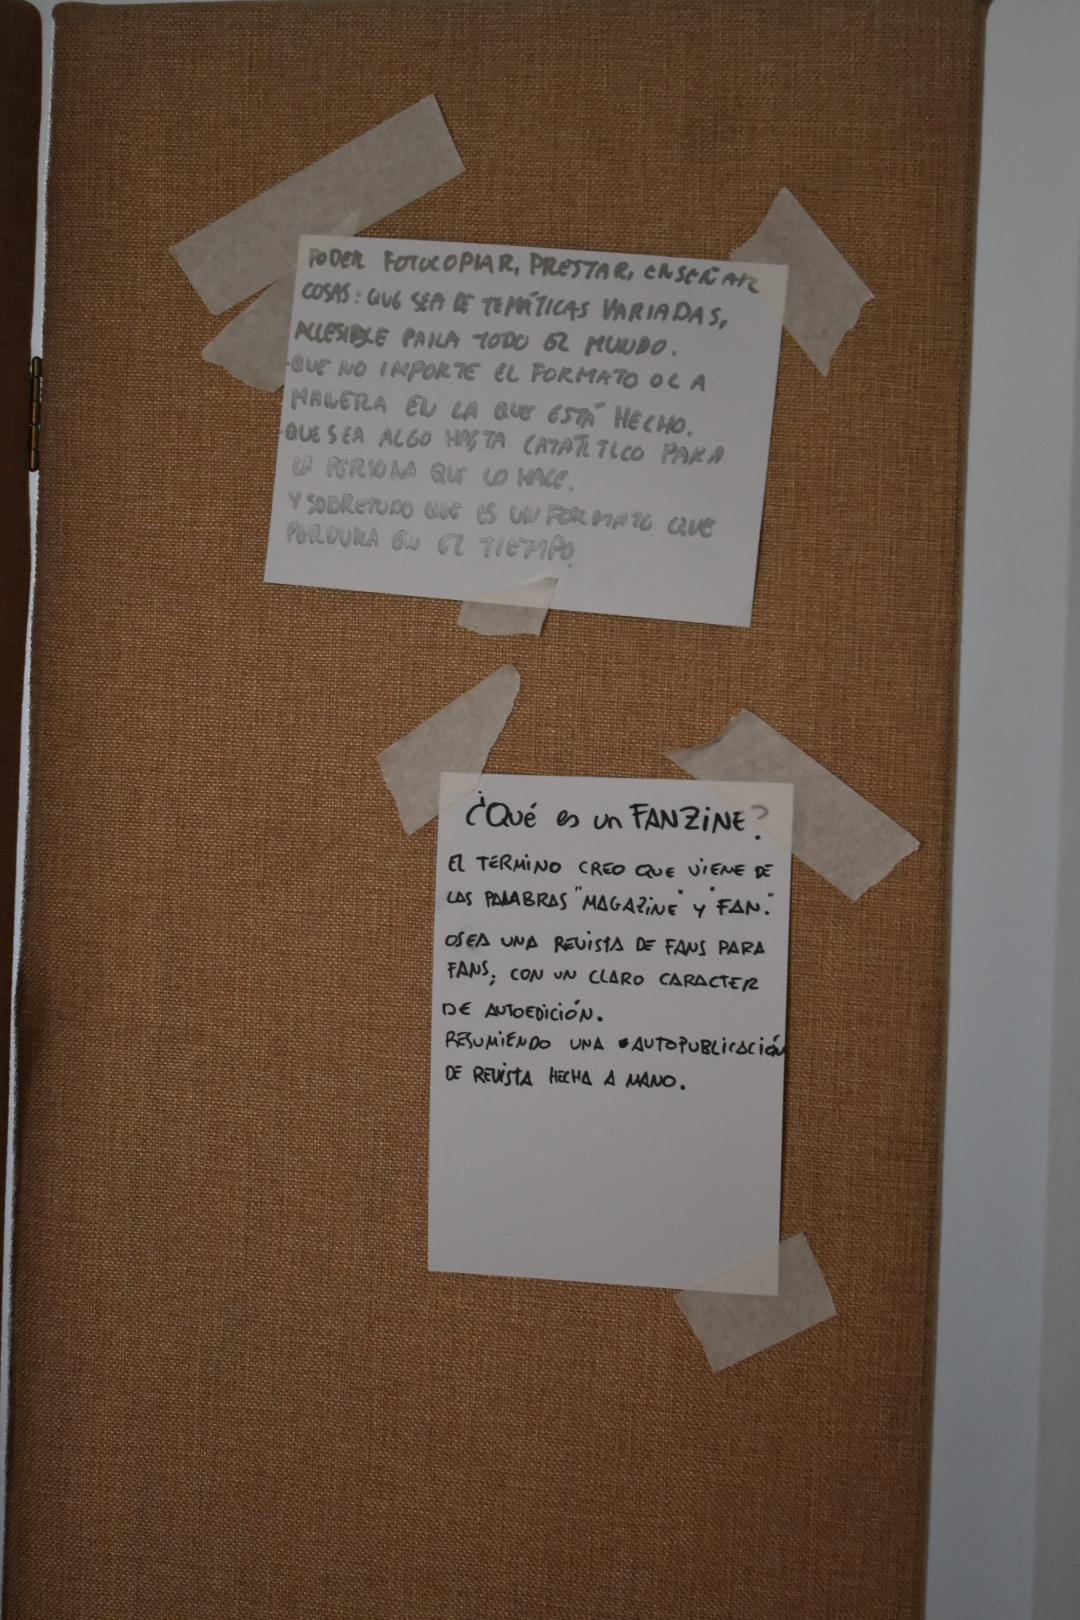 PODER FOTOCOPIAR, PRESTAR, ENSEÑAR
COSAS: QUE SEA DE TEMÁTICAS VARIADAS,
ACCESIBLE PARA TODO EL MUNDO.
-QUE NO IMPORTE EL FORMATO O LA
MANERA EN LA QUE ESTÁ HECHO.
-QUE SEA ALGO HASTA CATÁRTICO PARA
LA PERSONA QUE LO HACE.
Y SOBRETODO QUE ES UN FORMATO QUE
PERDURA EN EL TIEMPO.
¿Qué es un FANZINE?
EL TERMINO CREO QUE VIENE DE
LAS PALABRAS "MAGAZINE" Y "FAN."
OSEA UNA REVISTA DE FANS PARA
FANS; CON UN CLARO CARACTER
DE AUTOEDICIÓN.
RESUMIENDO UNA AUTOPUBLICACIÓN
DE REVISTA HECHA A MANO.